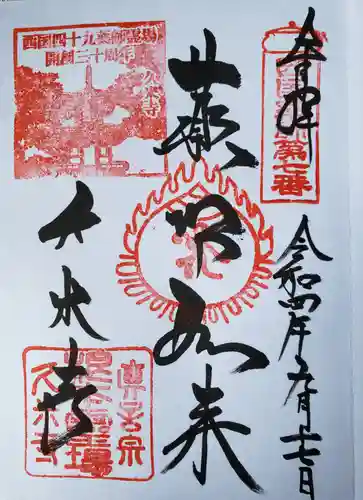 奉拝
西国薬師第七番
令和四年五月廿七日
薬師如来
西国四十九薬師霊場
開創三十周年
久米寺
久米寺
真言宗
久米寺